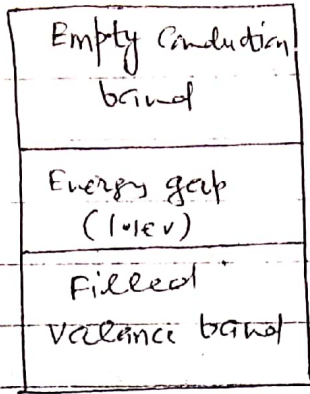 Empty Conduction
band
Energy gap
(1.1ev)
Filled
Valance band